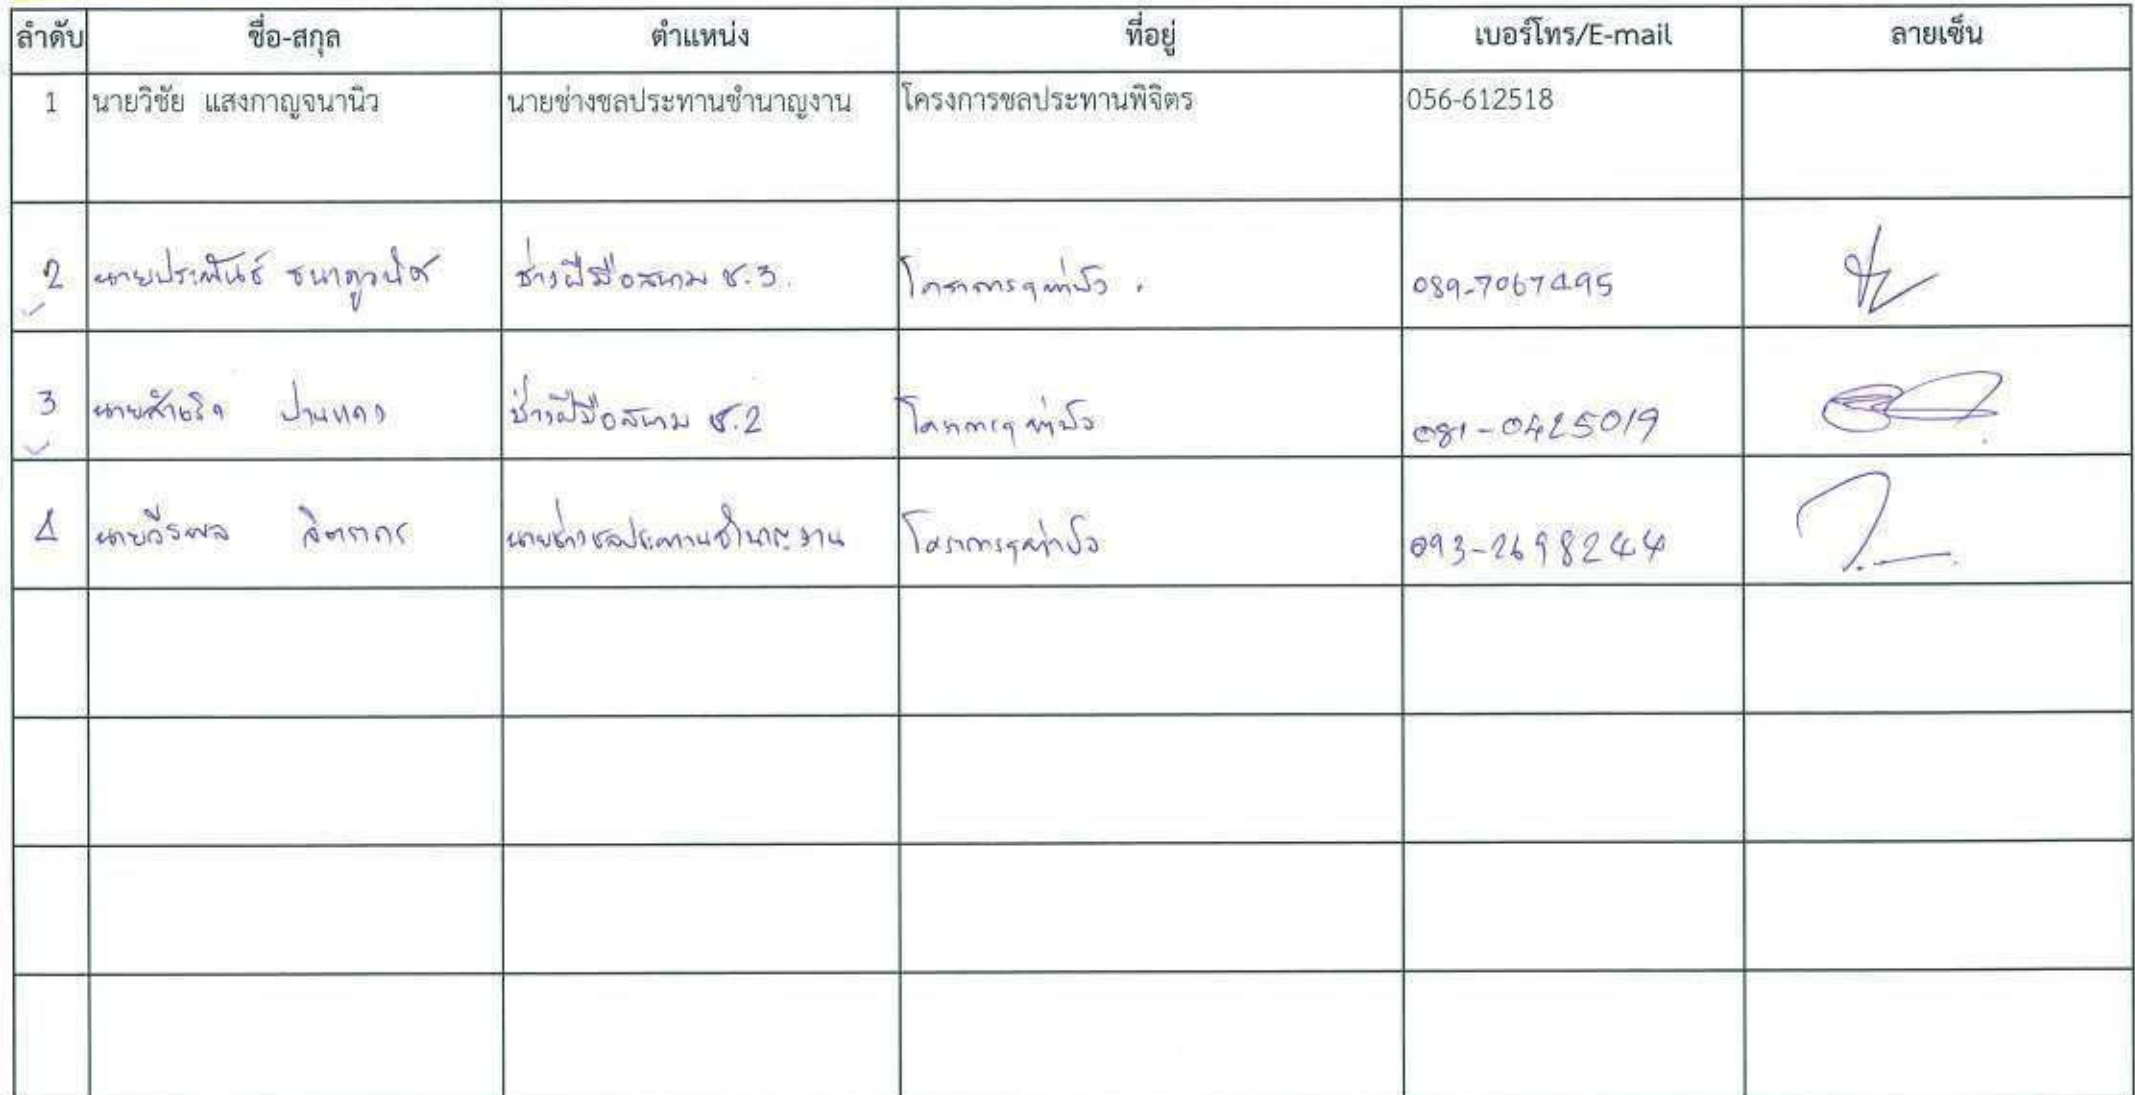 ลำดับ ชื่อ-สกุล ตำแหน่ง ที่อยู่ เบอร์โทร/E-mail ลายเซ็น
1 นายวิชัย แสงกาญจนานิว นายช่างชลประทานชำนาญงาน โครงการชลประทานพิจิตร 056-612518
2 นายประพันธ์ ช่างฝีมือสนาม ช.3. โครงการฯท่าบัว . 089-7067495
3 นายสำเริง ปานแดง ช่างฝีมือสนาม ช.2 โครงการฯท่าบัว 081-0425019
4 นายวีรพล จิตรากร นายช่างชลประทานชำนาญงาน โครงการฯท่าบัว 093-2698244